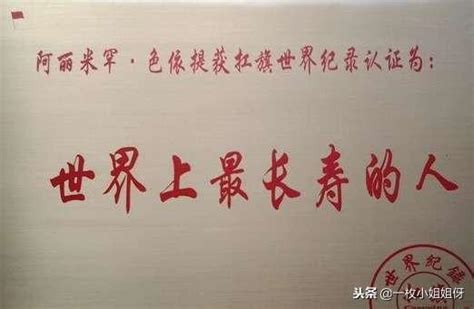 阿丽米罕·色依提获扛旗世界纪录认证为:
世界上最长寿的人
世界纪录
头条 @一枚小姐姐呀